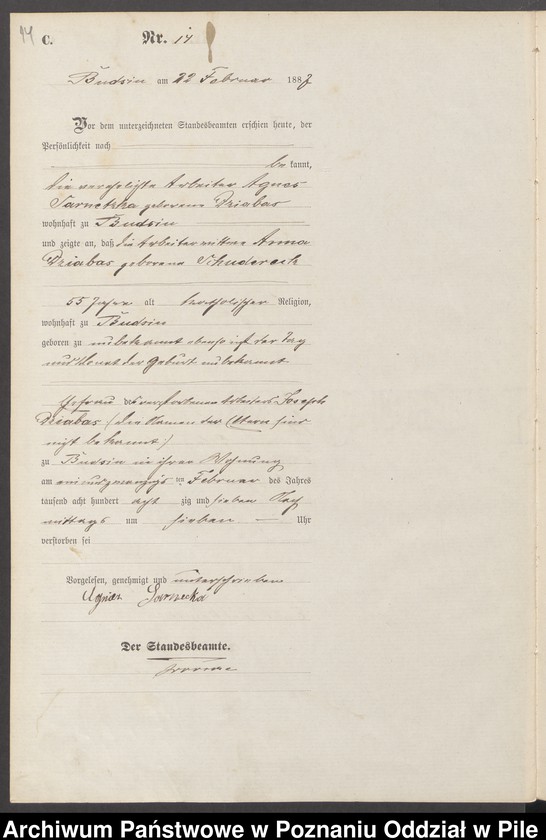 14
C. Nr. 14
Budsin am 22 Februar 1887
Vor dem unterzeichneten Standesbeamten erschien heute, der
Persönlichkeit nach
bekannt,
die verehelichte Arbeiter Agnes
Sarnetzka geborene Dziabas
wohnhaft zu Budsin
und zeigte an, daß die Arbeiterwittwe Anna
Dziabas geborene
55 Jahre alt katholischer Religion,
wohnhaft zu Budsin
geboren zu unbekannt ebenso ist der Tag
und Monat der Geburt unbekannt
Ehefrau des verstorbenen Arbeiters Joseph
Dziabas (die Namen der Eltern sind
nicht bekannt)
zu Budsin in ihrer Wohnung
am ein und zwanzigsten Februar des Jahres
tausend acht hundert achtzig und sieben Nach
mittags um sieben Uhr
verstorben sei
Vorgelesen, genehmigt und unterschrieben
Agnes Sarnecka
Der Standesbeamte.
Archiwum Państwowe w Poznaniu Oddział w Pile